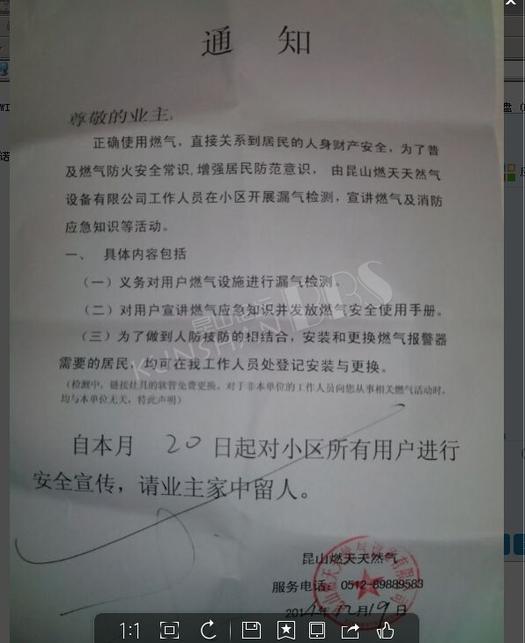 通 知
尊敬的业主,
正确使用燃气，直接关系到居民的人身财产安全，为了普
及燃气防火安全常识,增强居民防范意识，由昆山燃天天然气
设备有限公司工作人员在小区开展漏气检测，宣讲燃气及消防
应急知识等活动。
一、 具体内容包括
（一）义务对用户燃气设施进行漏气检测。
（二）对用户宣讲燃气应急知识并发放燃气安全使用手册。
（三）为了做到人防技防的相结合，安装和更换燃气报警器
需要的居民，均可在我工作人员处登记安装与更换。
(检测中，链接灶具的软管免费更换。对于非本单位的工作人员向您从事相关燃气活动时，
均与本单位无关，特此声明)
自本月 20 日起对小区所有用户进行
安全宣传，请业主家中留人。
昆山燃天天然气
服务电话：0512-89889583
2014年12月19日
KUNSHAN BBS
1:1